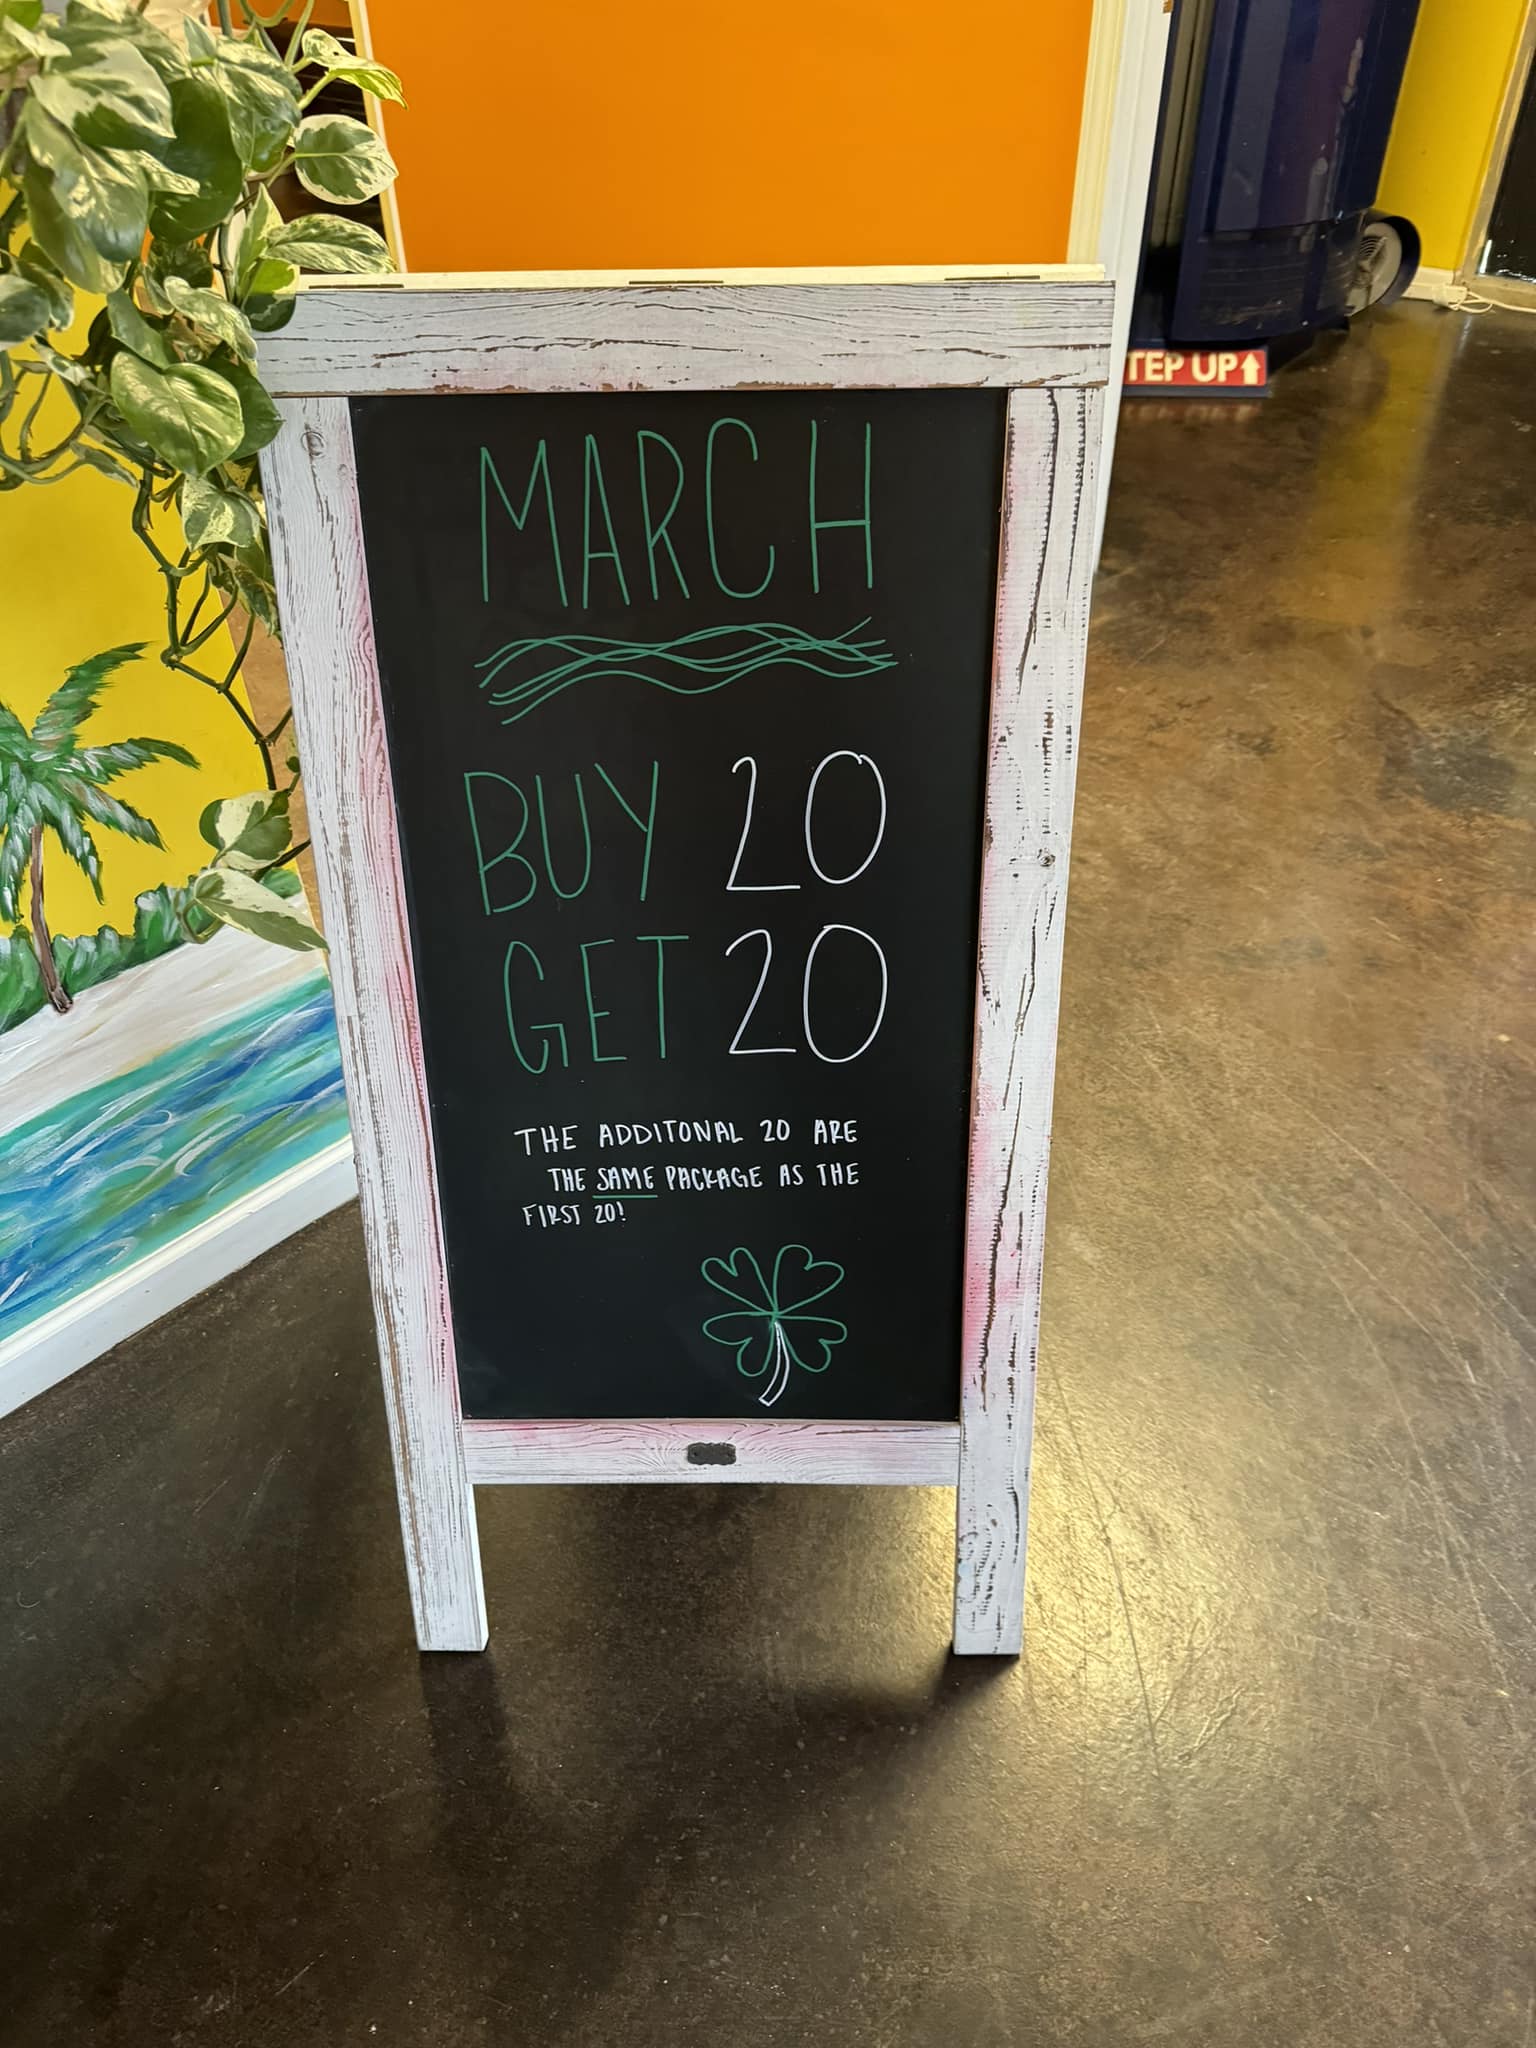 TEP UP
MARCH
BUY 20
GET 20
THE ADDITONAL 20 ARE
THE SAME PACKAGE AS THE
FIRST 20!